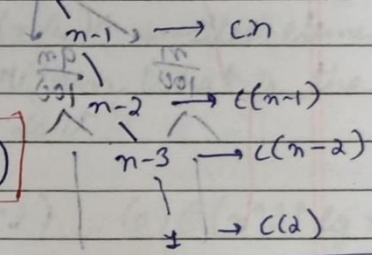 n-1 → cn
n-2 → c(n-1)
n-3 → c(n-2)
1 → c(2)